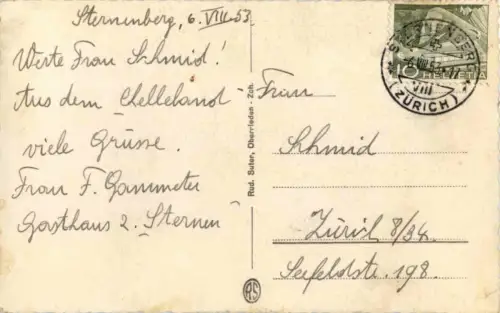 Sternenberg, 6. VIII. 53.
Werte Frau Schmid!
Aus dem Chelleland
viele Grüsse.
Frau F. Gammeter
Gasthaus z. Sternen
Rud. Suter, Oberrieden - Zch.
RS
STERNENBERG
-6.VIII.53.-17
VIII
* (ZÜRICH) *
10 HELVETIA
Frau
Schmid
Zürich 8/34
Seefeldstr. 198.